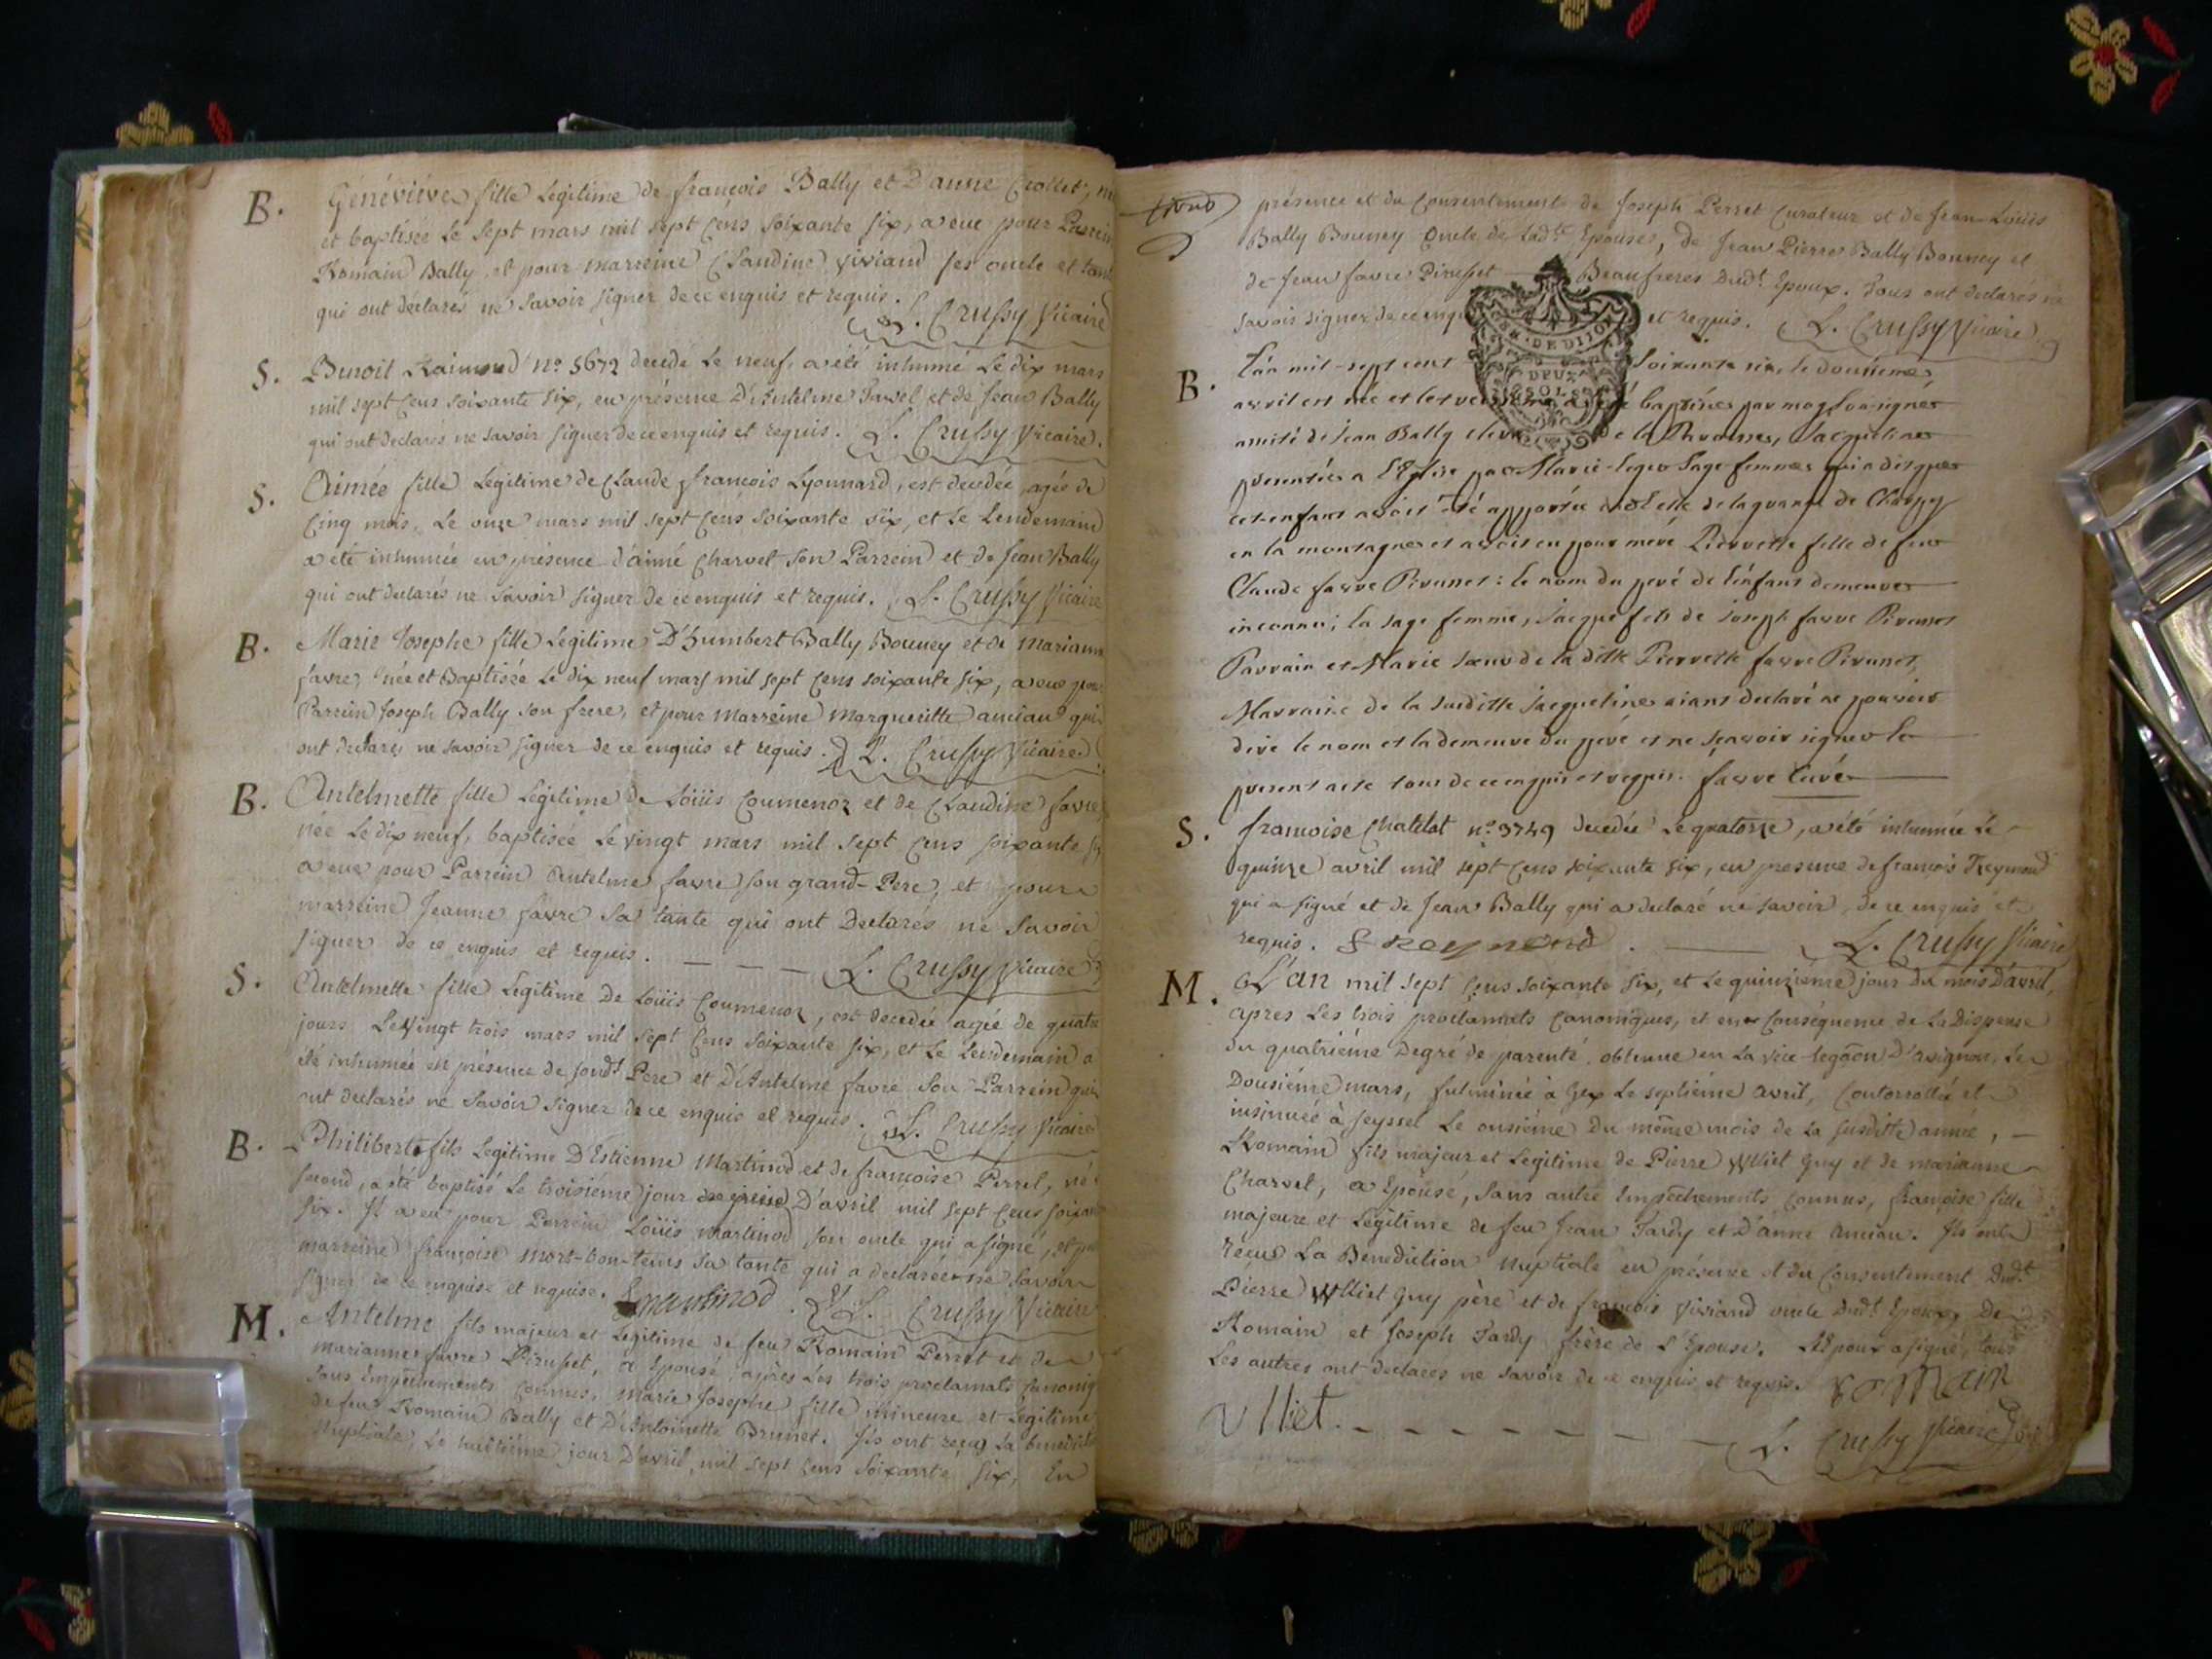 B. Généviéve fille Legitime de françois Bally et D'anne Crollet, née
et baptisée Le sept mars mil sept Cens soixante six, a eue pour Parrein
Romain Bally, et pour marreine Claudine Viviand ses oncle et tante
qui ont declarés ne savoir signer de ce enquis et requis. L. Crussy Vicaire
S. Benoit Raimond no. 5672 decedé Le neuf, a été inhumé Le dix mars
mil sept Cens soixante six, en présence D'Antelme Favel et de Jean Bally
qui ont declarés ne savoir signer de ce enquis et requis. L. Crussy Vicaire.
S. Aimée fille Legitime de Claude françois Lyonnard, est decedée, agée de
Cinq mois, Le onze mars mil sept Cens soixante six, et Le Lendemain
a été inhumée en présence d'aimé Charvet son Parrein et de Jean Bally
qui ont declarés ne savoir signer de ce enquis et requis. L. Crussy Vicaire
B. Marie Josephe fille Legitime D'humbert Bally Bouney et de Marianne
favre, née et Baptisée Le dix neuf mars mil sept Cens soixante six, a eue pour
Parrein Joseph Bally son frere, et pour Marreine Margueritte anciau qui
ont declarés ne savoir signer de ce enquis et requis. L. Crussy Vicaire
B. Antelmette fille Légitime de Loüis Coumenoz et de Claudine favre
née Le dix neuf, baptisée Le vingt mars mil sept Cens soixante six
a eue pour Parrein Antelme favre son grand-Pere, et pour
marreine Jeanne favre sa tante qui ont Declarés ne savoir
signer de ce enquis et requis. _ _ _ L. Crussy Vicaire
S. Antelmette fille Legitime de Loüis Coumenoz, est decedée agée de quatre
jours Le vingt trois mars mil sept Cens soixante six, et Le Lendemain a
été inhumée en présence de sondt. Pere et D'Antelme favre son Parrein qui
ont declarés ne savoir signer de ce enquis et requis. L. Crussy Vicaire
B. Philibert fils Legitime D'Estienne Martinod et de françoise Perret, né
second, a été baptisé Le troisiéme jour D'avril mil sept Cens soixante
six. Il a eu pour Parrein Loüis Martinod son oncle qui a signé, et pour
marreine françoise Mort-bon-tems sa tante qui a declarée ne savoir
signer de ce enquise et requise. Lmartinod. L. Crussy Vicaire
M. Antelme fils majeur et Légitime de feu Romain Perret et de
marianne favre Pirupet, a Epousé, après Les trois proclamats Canoniq
sans Empechements Connus, Marie Josephe fille mineure et Légitime
de feu Romain Bally et D'Antoinette Brunet. Ils ont reçus La benedictio
Nuptiale, Le huitiéme jour D'avril, mil sept Cens soixante six, En
présence et du Consentement de Joseph Perret Curateur et de Jean-Loüis
Bally Bouney oncle de ladte. Epouse, de Jean Pierre Bally Bouney et
de Jean favre Pirupet Beaufreres Dudt. Epoux. Tous ont declarés ne
savoir signer de ce enq et requis. L. Crussy Vicaire
GEN. DE DIJON
DEUX
SOLS
B. L'an mil-sept cent soixante six, le douzieme
avril est née et le baptisée par moy soussigné
amité de Jean Bally cler de la Paroisse, Jacqueline
presentée a l'Eglise par Marie Leger Sage femme qui a dit que
cet enfant avoit été apportée de la grange de Charpy
en la montagne et avoit eu pour mere Pierrette fille de feu
Claude favre Pirunet: le nom du peré de l'enfant demeure
inconnu; la sage femme, Jacque fils de Joseph favre Pirunet
Parrain et Marie soeur de la ditte Pierrette favre Pirunet,
Marraine de la suditte Jacqueline aiant declaré ne pouvoir
dire le nom et la demeure du peré et ne scavoir signer le
present acte tous de ce enquis et requis. favre Curé
S. françoise Chatelat no. 3749 decedée Le quatorze, a été inhumée Le
quinze avril mil sept Cens soixante six, en presence de françois Reymond
qui a signé et de Jean Bally qui a declaré ne savoir, de ce enquis et
requis. f Reymond. L. Crussy Vicaire
M. L'an mil sept Cens soixante six, et Le quinziéme jour du mois D'avril,
apres Les trois proclamats Canoniques, et en Conséquence de La Dispense
du quatriéme Degré de parenté obtenue en La vice-legâon D'avignon, Le
Dousiéme mars, fulminée a Gex Le septiéme avril, Contorrollée et
insinuée à Seyssel Le onsiéme du même mois de La susditte année, –
Romain fils majeur et Legitime de Pierre Wlliet Guy et de marianne
Charvet, a Epousé, sans autre Empechements Connus, françoise fille
majeure et Légitime de feu Jean Tardy et D'anne anciau. Ils ont
réçus La Benediction Nuptiale en présence et du Consentement Dudt
Pierre Wlliet Guy pere et de françois Viviand oncle Dudt Epoux, De
Romain et Joseph Tardy frère de L'Epouse. L'Epoux a signé, tous
Les autres ont declarés ne savoir de ce enquis et requis. Romain
Vlliet. _ _ _ _ _ _ _ L. Crussy Vicaire